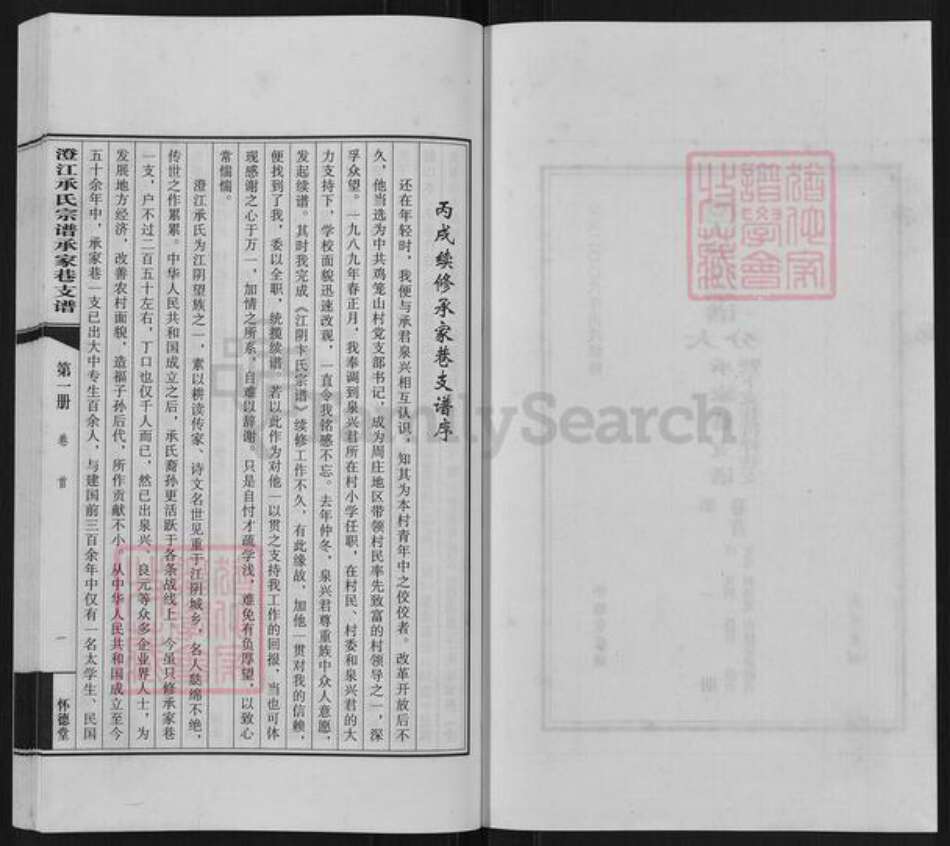 丙戌续修承家巷支谱序
还在年轻时，我便与承君泉兴相互认识，知其为本村青年中之佼佼者。改革开放后不
久，他当选为中共鸡笼山村党支部书记，成为周庄地区带领村民率先致富的村领导之一，深
孚众望。一九八九年春正月，我奉调到泉兴君所在村小学任职，在村民、村委和泉兴君的大
力支持下，学校面貌迅速改观，一直令我铭感不忘。去年仲冬，泉兴君尊重族中众人意愿，
发起续谱。其时我完成《江阴卞氏宗谱》续修工作不久，有此缘故，加他一贯对我的信赖，
便找到了我，委以全职，统揽续谱。若以此作为对他一以贯之支持我工作的回报，当也可体
现感谢之心于万一，加情之所系，自难以辞谢。只是自忖才疏学浅，难免有负厚望，以致心
常惴惴。
澄江承氏为江阴望族之一，素以耕读传家、诗文名世见重于江阴城乡，名人懿绵不绝，
传世之作累累。中华人民共和国成立之后，承氏裔孙更活跃于各条战线上，今虽只修承家巷
一支，户不过二百五十左右，丁口也仅千人而已，然已出泉兴、良元等众多企业界人士，为
发展地方经济，改善农村面貌，造福子孙后代，所作贡献不小。从中华人民共和国成立至今
五十余年中，承家巷一支已出大中专生百余人，与建国前三百余年中仅有一名太学生、民国
澄江承氏宗谱承家巷支谱
第一册
卷首
一
怀德堂
FamilySearch